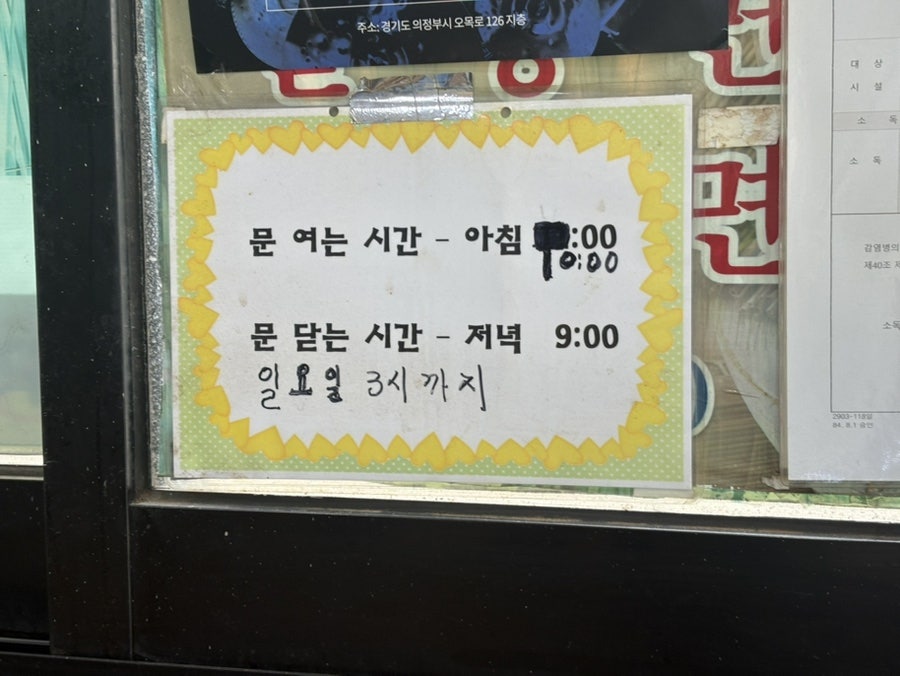 주소: 경기도 의정부시 오목로 126 지층
문 여는 시간 - 아침 :00
10:00
문 닫는 시간 - 저녁 9:00
일요일 3시까지
대 상
시 설
소 독
소 독
감염병의
제40조 제
소독
2903-118일
84. 8. 1 승인